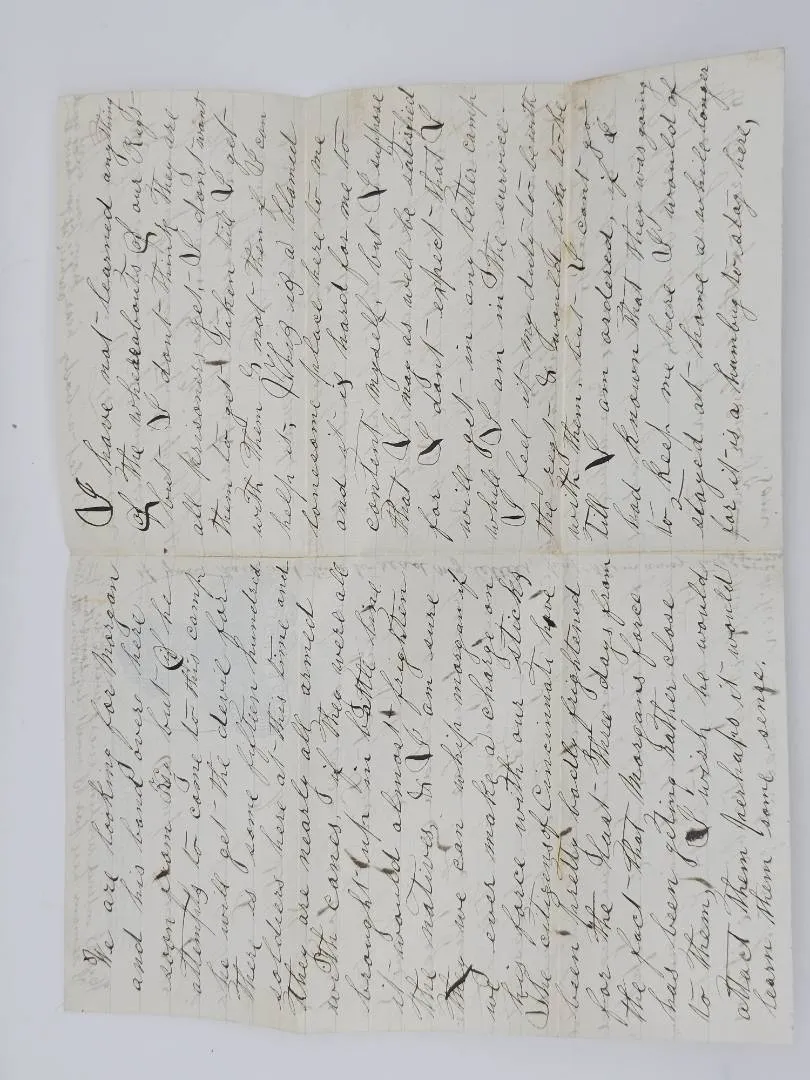 We are looking for Morgan
and his band overe here
soon from Ky but if he
atempts to come to this camp
he will get the devil for
there is some fifteen hundred
soldiers here at this time and
they are nearly all armed
with canes, if they were all
brought up in battle line
it would almost frighten
the natives, & I am sure
we can whip morgan if
we ever make a charge on
his force with our sticks
The citizens of Cincinnati have
been pretty badly frightened
for the last three days from
the fact that Morgans force
has been geting rather close
to them, I wish he would
attact them perhaps it would
learn them some sense.
I have not learned anything
of the whereabouts of our Regt
but I dont think they are
all prisoners yet, I dont want
them to get taken till I get
with them & not then if I can
help it, this is a blamed
lonesome place here to me
and it is hard for me to
content myself, but I suppose
that I may as well be satisfied
for I dont expect that I
will get in any better camp
while I am in the service.
I feel it my duty to be with
the regt & would like to be
with them, but I cant go
till I am ordered, if I
had known that they was going
to keep me here I would of
stayed at home a while longer
for it is a humbug to stay here,